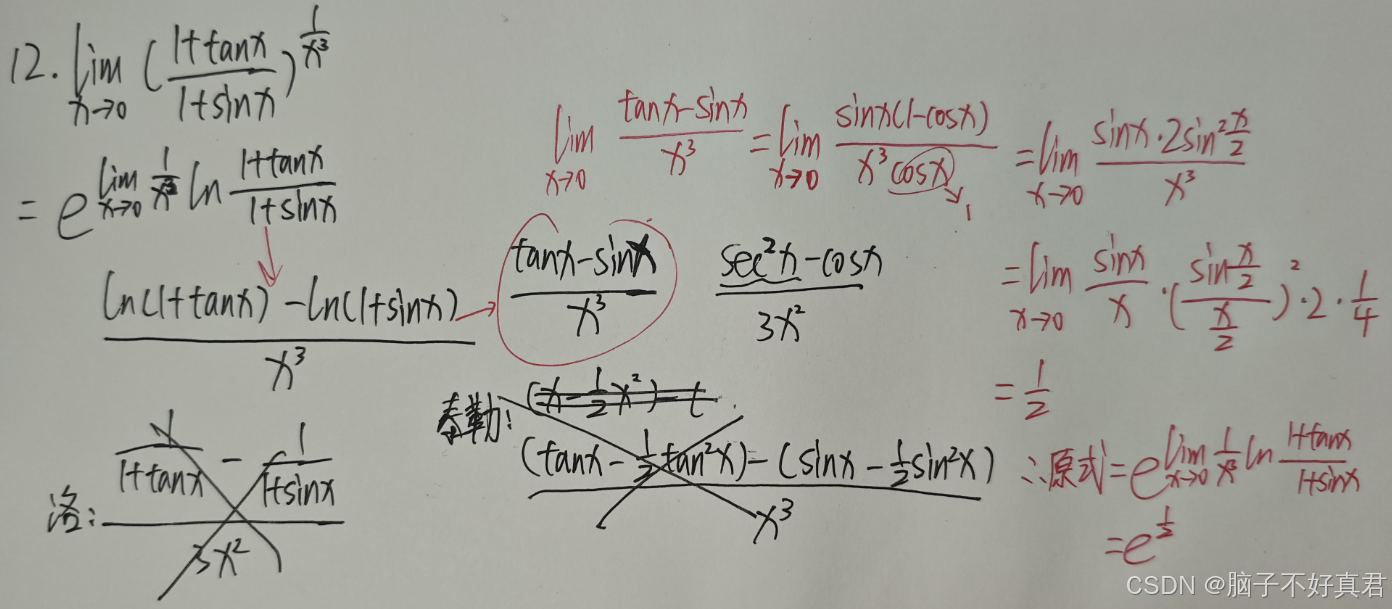 12. lim_{x→0} ((1+tanx)/(1+sinx))^{1/x³}
= e^{lim_{x→0} 1/x³ ln (1+tanx)/(1+sinx)}
(ln(1+tanx) - ln(1+sinx))/x³
洛: (1/(1+tanx) - 1/(1+sinx))/(3x²)
(tanx-sinx)/x³
(sec²x-cosx)/(3x²)
泰勒: (x-1/2x²)-(
((tanx-1/2tan²x)-(sinx-1/2sin²x))/x³
lim_{x→0} (tanx-sinx)/x³ = lim_{x→0} (sinx(1-cosx))/(x³cosx) →1 = lim_{x→0} (sinx·2sin²(x/2))/x³
= lim_{x→0} (sinx/x)·((sin(x/2))/(x/2))²·2·1/4
= 1/2
∴原式= e^{lim_{x→0} 1/x³ ln (1+tanx)/(1+sinx)}
= e^{1/2}
CSDN @脑子不好真君